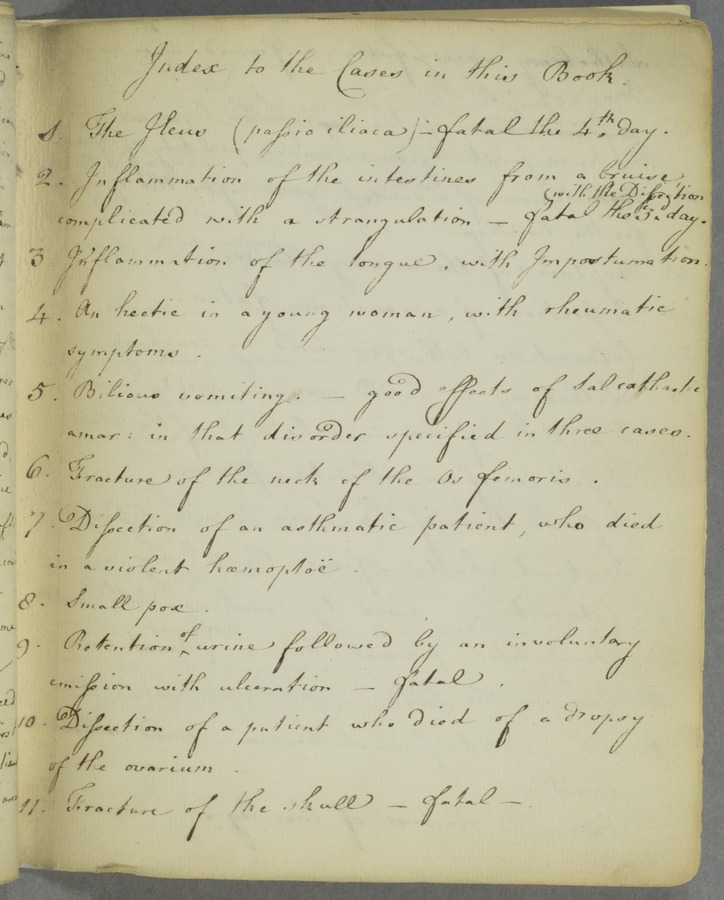 Index to the Cases in this Book.
1. The Ileus (passio iliaca) – fatal the 4th. day.
2. Inflammation of the intestines from a bruise
(with the Dissection
complicated with a strangulation — fatal the 3d. day.
3 Inflammation of the tongue, with Impostumation.
4. An hectic in a young woman, with rheumatic
symptoms.
5. Bilious vomiting. — good effects of Sal cathartic
amar: in that disorder specified in three cases.
6. Fracture of the neck of the Os femoris.
7. Dissection of an asthmatic patient, who died
in a violent hæmoptoë.
8. Small pox.
9. Retention of urine followed by an involuntary
emission with ulceration — fatal.
10. Dissection of a patient who died of a dropsy
of the ovarium.
11. Fracture of the skull — fatal —.